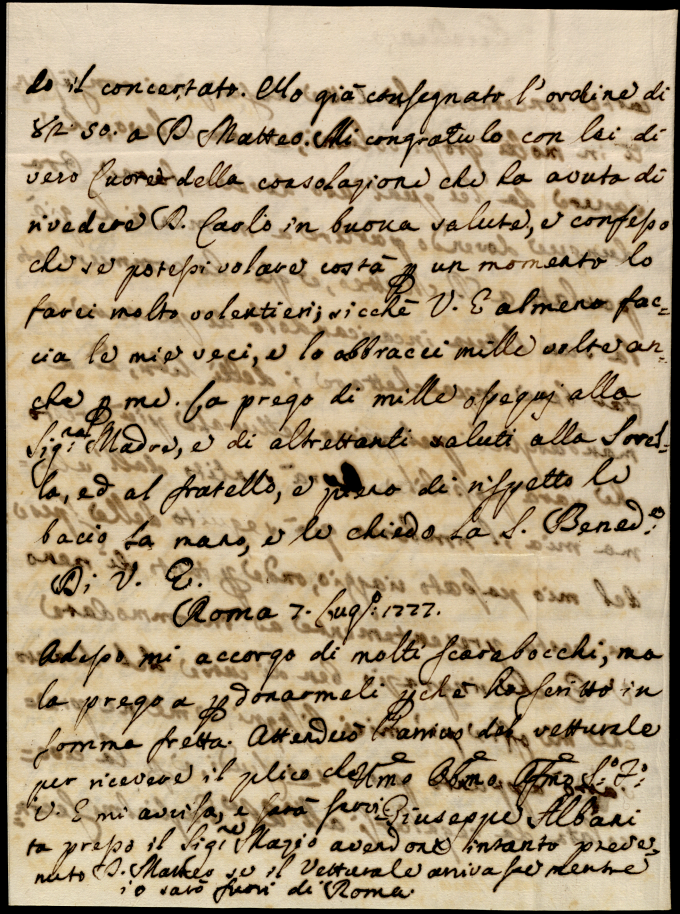 do il concertato. Ho già consegnato l'ordine di
82: 50. a D Matteo. Mi congratulo con lei di
vero Cuore della consolazione che ha avuta di
rivedere D. Carlo in buona salute, e confesso
che se potessi volare costà p un momento lo
farei molto volentieri; sicchè V. E almeno fac=
cia le mie veci, e lo abbracci mille volte an=
che p me. La prego di mille ossequj alla
Sig.ra Madre, e di altrettanti saluti alla Sorel=
la, ed al fratello, e pieno di rispetto le
bacio la mano, e le chiedo la S. Bened.e
Di V. E.
Roma 7. Lug.o 1777.
Adesso mi accorgo di molti scarabocchi, ma
la prego a pdonarmeli pchè ho scritto in
somma fretta. Attenderò l'arrivo del vetturale
per ricevere il plico che Umo Obmo Affmo S.o F.o
V. E mi avvisa, e sarà servi Giuseppe Albani
ta presso il Sig.re Magio avendone intanto preve=
nuto D. Matteo se il Vetturale arrivasse mentre
io sarò fuori di Roma.